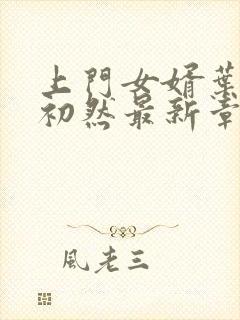 上門女婿葉
初然最新章
風老三